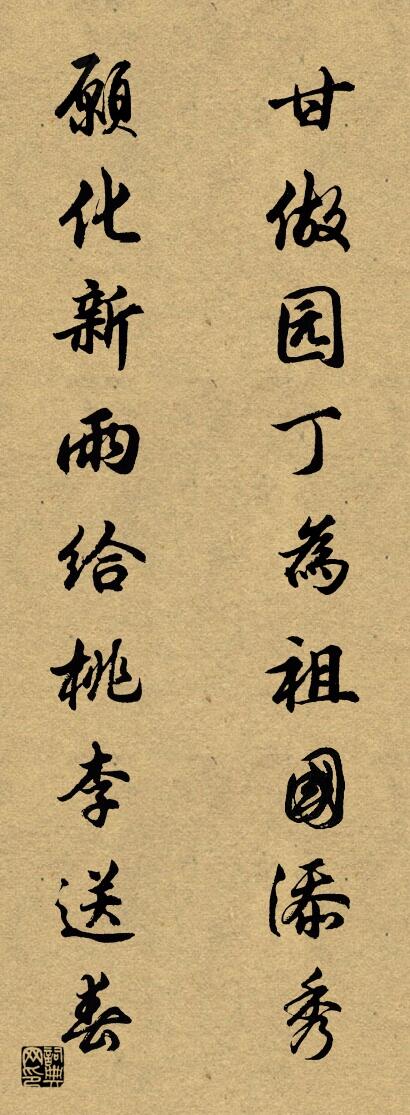 甘做园丁為祖國添秀
願化新雨给桃李送春
詞典网印